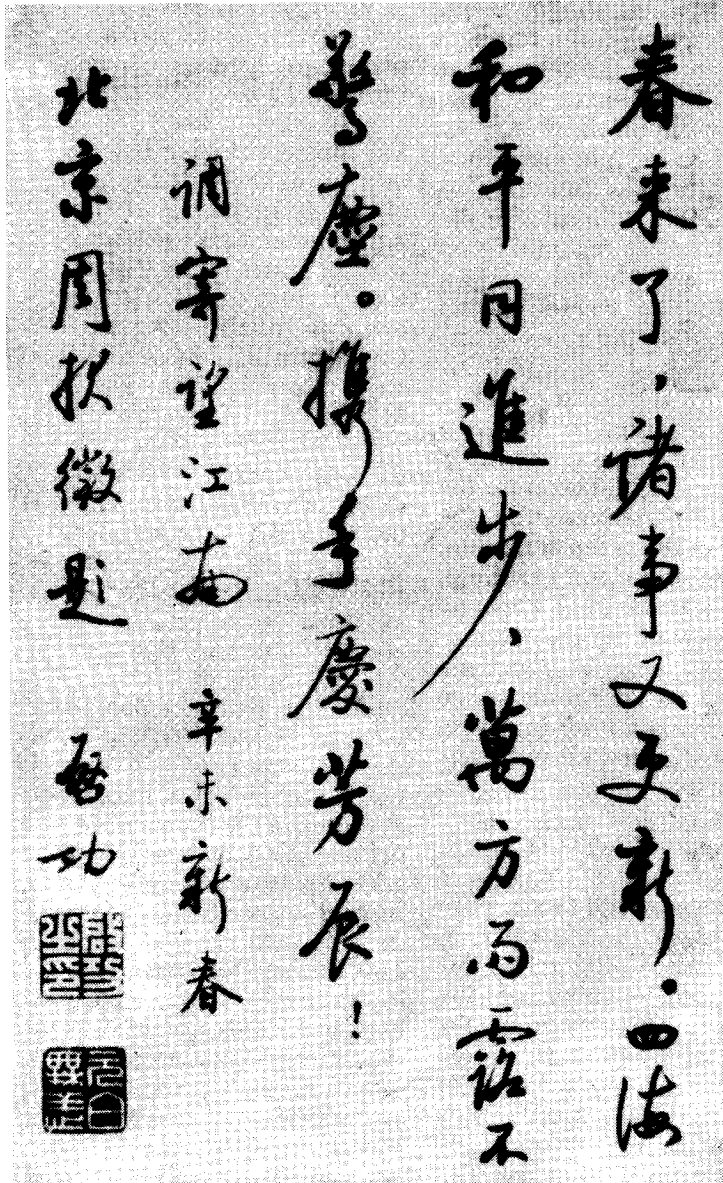 春来了、諸事又更新。四海
和平同進步、萬方雨露不
驚塵。携手慶芳辰！
调寄望江南 辛未新春
北京周报徵題 启功